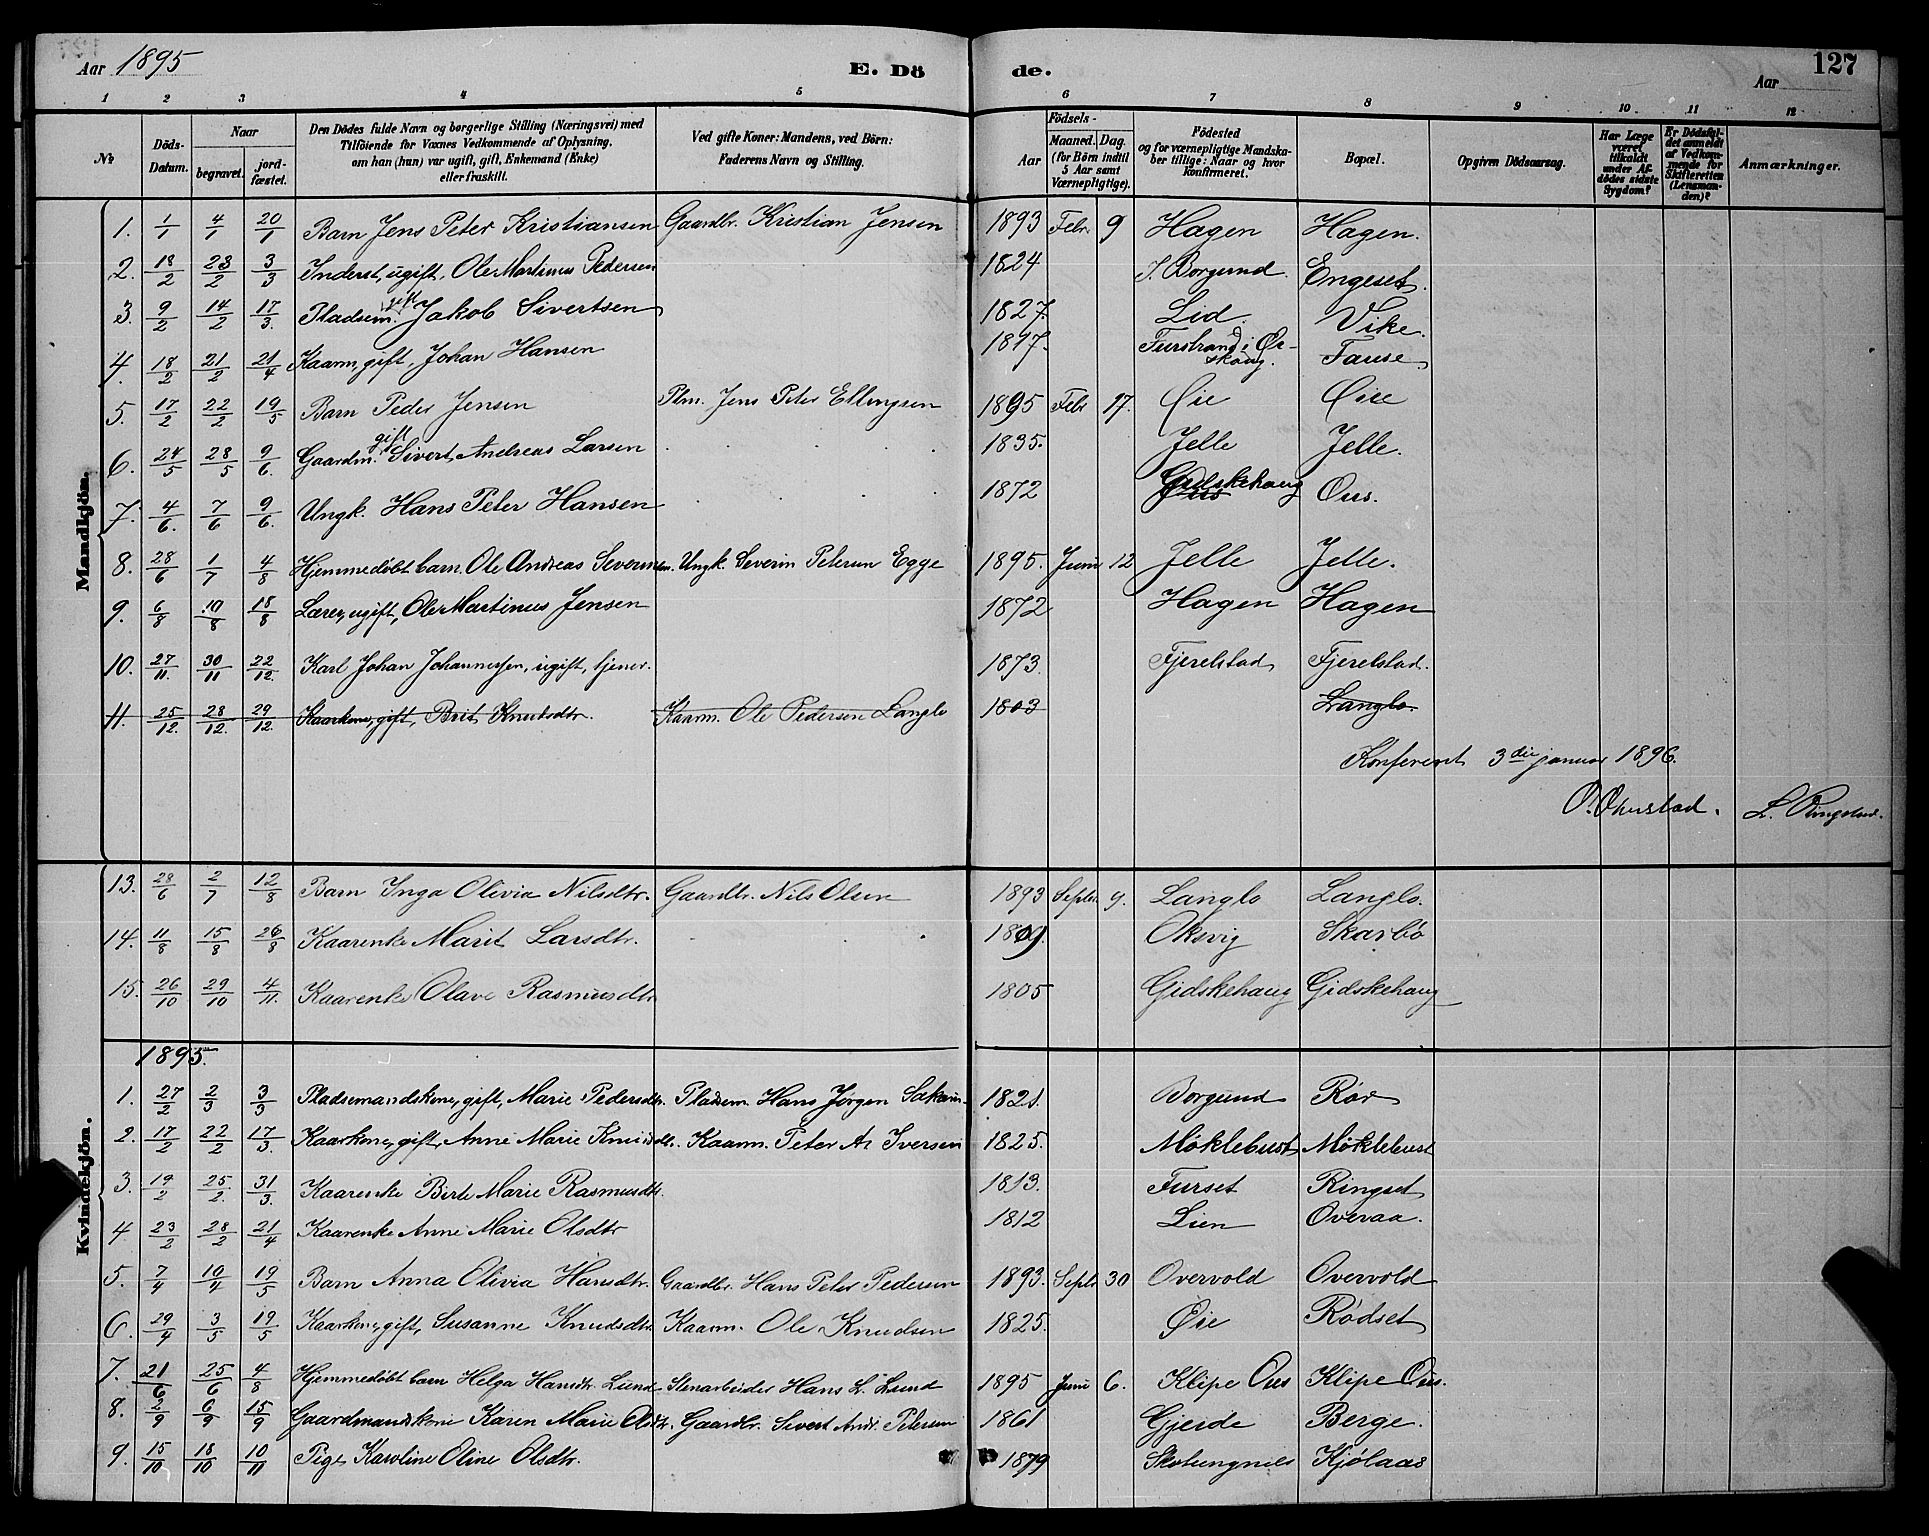 Aar 1895 E. Dö de. Aar 127
1 2 3 4 5 6 7 8 9 10 11 12
No Döds-Datum. Naar begravet. jordfæstet. Den Dödes fulde Navn og borgerlige Stilling (Næringsvei) med Tilföiende for Voxnes Vedkommende af Oplysning, om han (hun) var ugift, gift, Enkemand (Enke) eller fraskilt. Ved gifte Koner: Mandens, ved Börn: Faderens Navn og Stilling. Födsels- Aar Maaned. Dag. (for Börn indtil 5 Aar samt Værnepligtige). Födested og for værnepligtige Mandskaber tillige: Naar og hvor konfirmeret. Bopæl. Opgiven Dödsaarsag. Har Læge været tilkaldt under Afdödes sidste Sygdom? Er Dödsfaldet anmeldt af Vedkommende for Skifteretten (Lensmanden)? Anmærkninger.
Mandkjön.
1. 1/1 4/1 20/1 Barn Jens Peter Kristiansen Gaardbr. Kristian Jensen 1893 Febr. 9 Hagen Hagen.
2. 18/2 23/2 3/3 Inderst, ugift, Ole Martinus Pedersen 1824 I. Borgund Engeset.
3. 9/2 14/2 17/3. Pladsem. gift Jakob Sivertsen 1827. Lid. Vike.
4. 18/2 21/2 21/4 Kaarm, gift, Johan Hansen 1817. Furstrand i Ørskoug. Fause.
5. 17/2 22/2 19/5 Barn Peder Jensen Plm. Jens Peter Ellingsen 1895 Febr 17. Øie Øie
6. 24/5 28/5 9/6. Gaardm. gift Sivert Andreas Larsen 1835. Jelle Jelle.
7. 4/6. 7/6 9/6. Ungk. Hans Peter Hansen 1872 Gidskehaug Ous.
8. 28/6 1/7 4/8 Hjemmedøbt barn. Ole Andreas Severinsen. Ungk. Severin Petersen Egge 1895. Juni 12 Jelle Jelle.
9. 6/8 10/8 18/8 Lærer, ugift, Ole Martinus Jensen 1872 Hagen Hagen
10. 27/11. 30/11 22/12. Karl Johan Johannessen, ugift, tjener. 1873. Fjerelstad Fjerelstad.
11. 25/12. 28/12. 29/12. Kaarkone, gift, Brit Knutsdtr. Kaarm. Ole Pedersen Langlo 1803 Langlo.
Konfereret 3die januar 1896.
O. Overstad. L. Ringstad.
13. 28/6 2/7 12/8 Barn Inga Olivia Nilsdtr. Gaardbr. Nils Olsen 1893 Septr. 9. Langlo Langlo.
14. 11/8 15/8 26/8 Kaarenke Marit Larsdtr. 1809. Oksvig Skarbö
15. 26/10 29/10 4/11. Kaarenke Olave Rasmusdtr 1805 Gidskehaug Gidskehaug
1895.
Kvindekjön.
1. 27/2 2/3 3/3 Pladsemandskone, gift, Marie Pedersdtr. Pladsem. Hans Jörgen Sakarias. 1821. Borgund Rör
2. 17/2 22/2 17/3. Kaarkone, gift, Anne Marie Knudsdtr. Kaarm. Peter A. Iversen 1825. Møklebust Møklebust
3. 19/2 25/2. 31/3. Kaarenke Birte Marie Rasmusdtr. 1813. Furset Ringset
4 23/2 28/2 21/4 Kaarenke Anne Marie Olsdtr 1812 Lien Overaa.
5. 7/4 10/4 19/5 Barn Anna Olivia Hansdtr. Gaardbr. Hans Peter Pedersen 1893. Septr. 30 Overvold Overvold
6. 29/4 3/5 19/5 Kaarkone, gift, Susanne Knudsdtr. Kaarm. Ole Knudsen 1825. Øie Rødset
7. 21/6 25/6 4/8 Hjemmedøbt barn Helga Hansdtr. Lund. Stenarbeider Hans L. Lund 1895 Juni 6. Klipe Ous Klipe Ous.
8. 2/9 6/9 15/9 Gaardmandskone Karen Marie Olsdtr. Gaardbr. Sivert Andr. Petersen 1861 Gjerde Berge.
9. 15/10 18/10 10/11 Pige Karoline Oline Olsdtr. 1879 Skotungnes Kjölaas